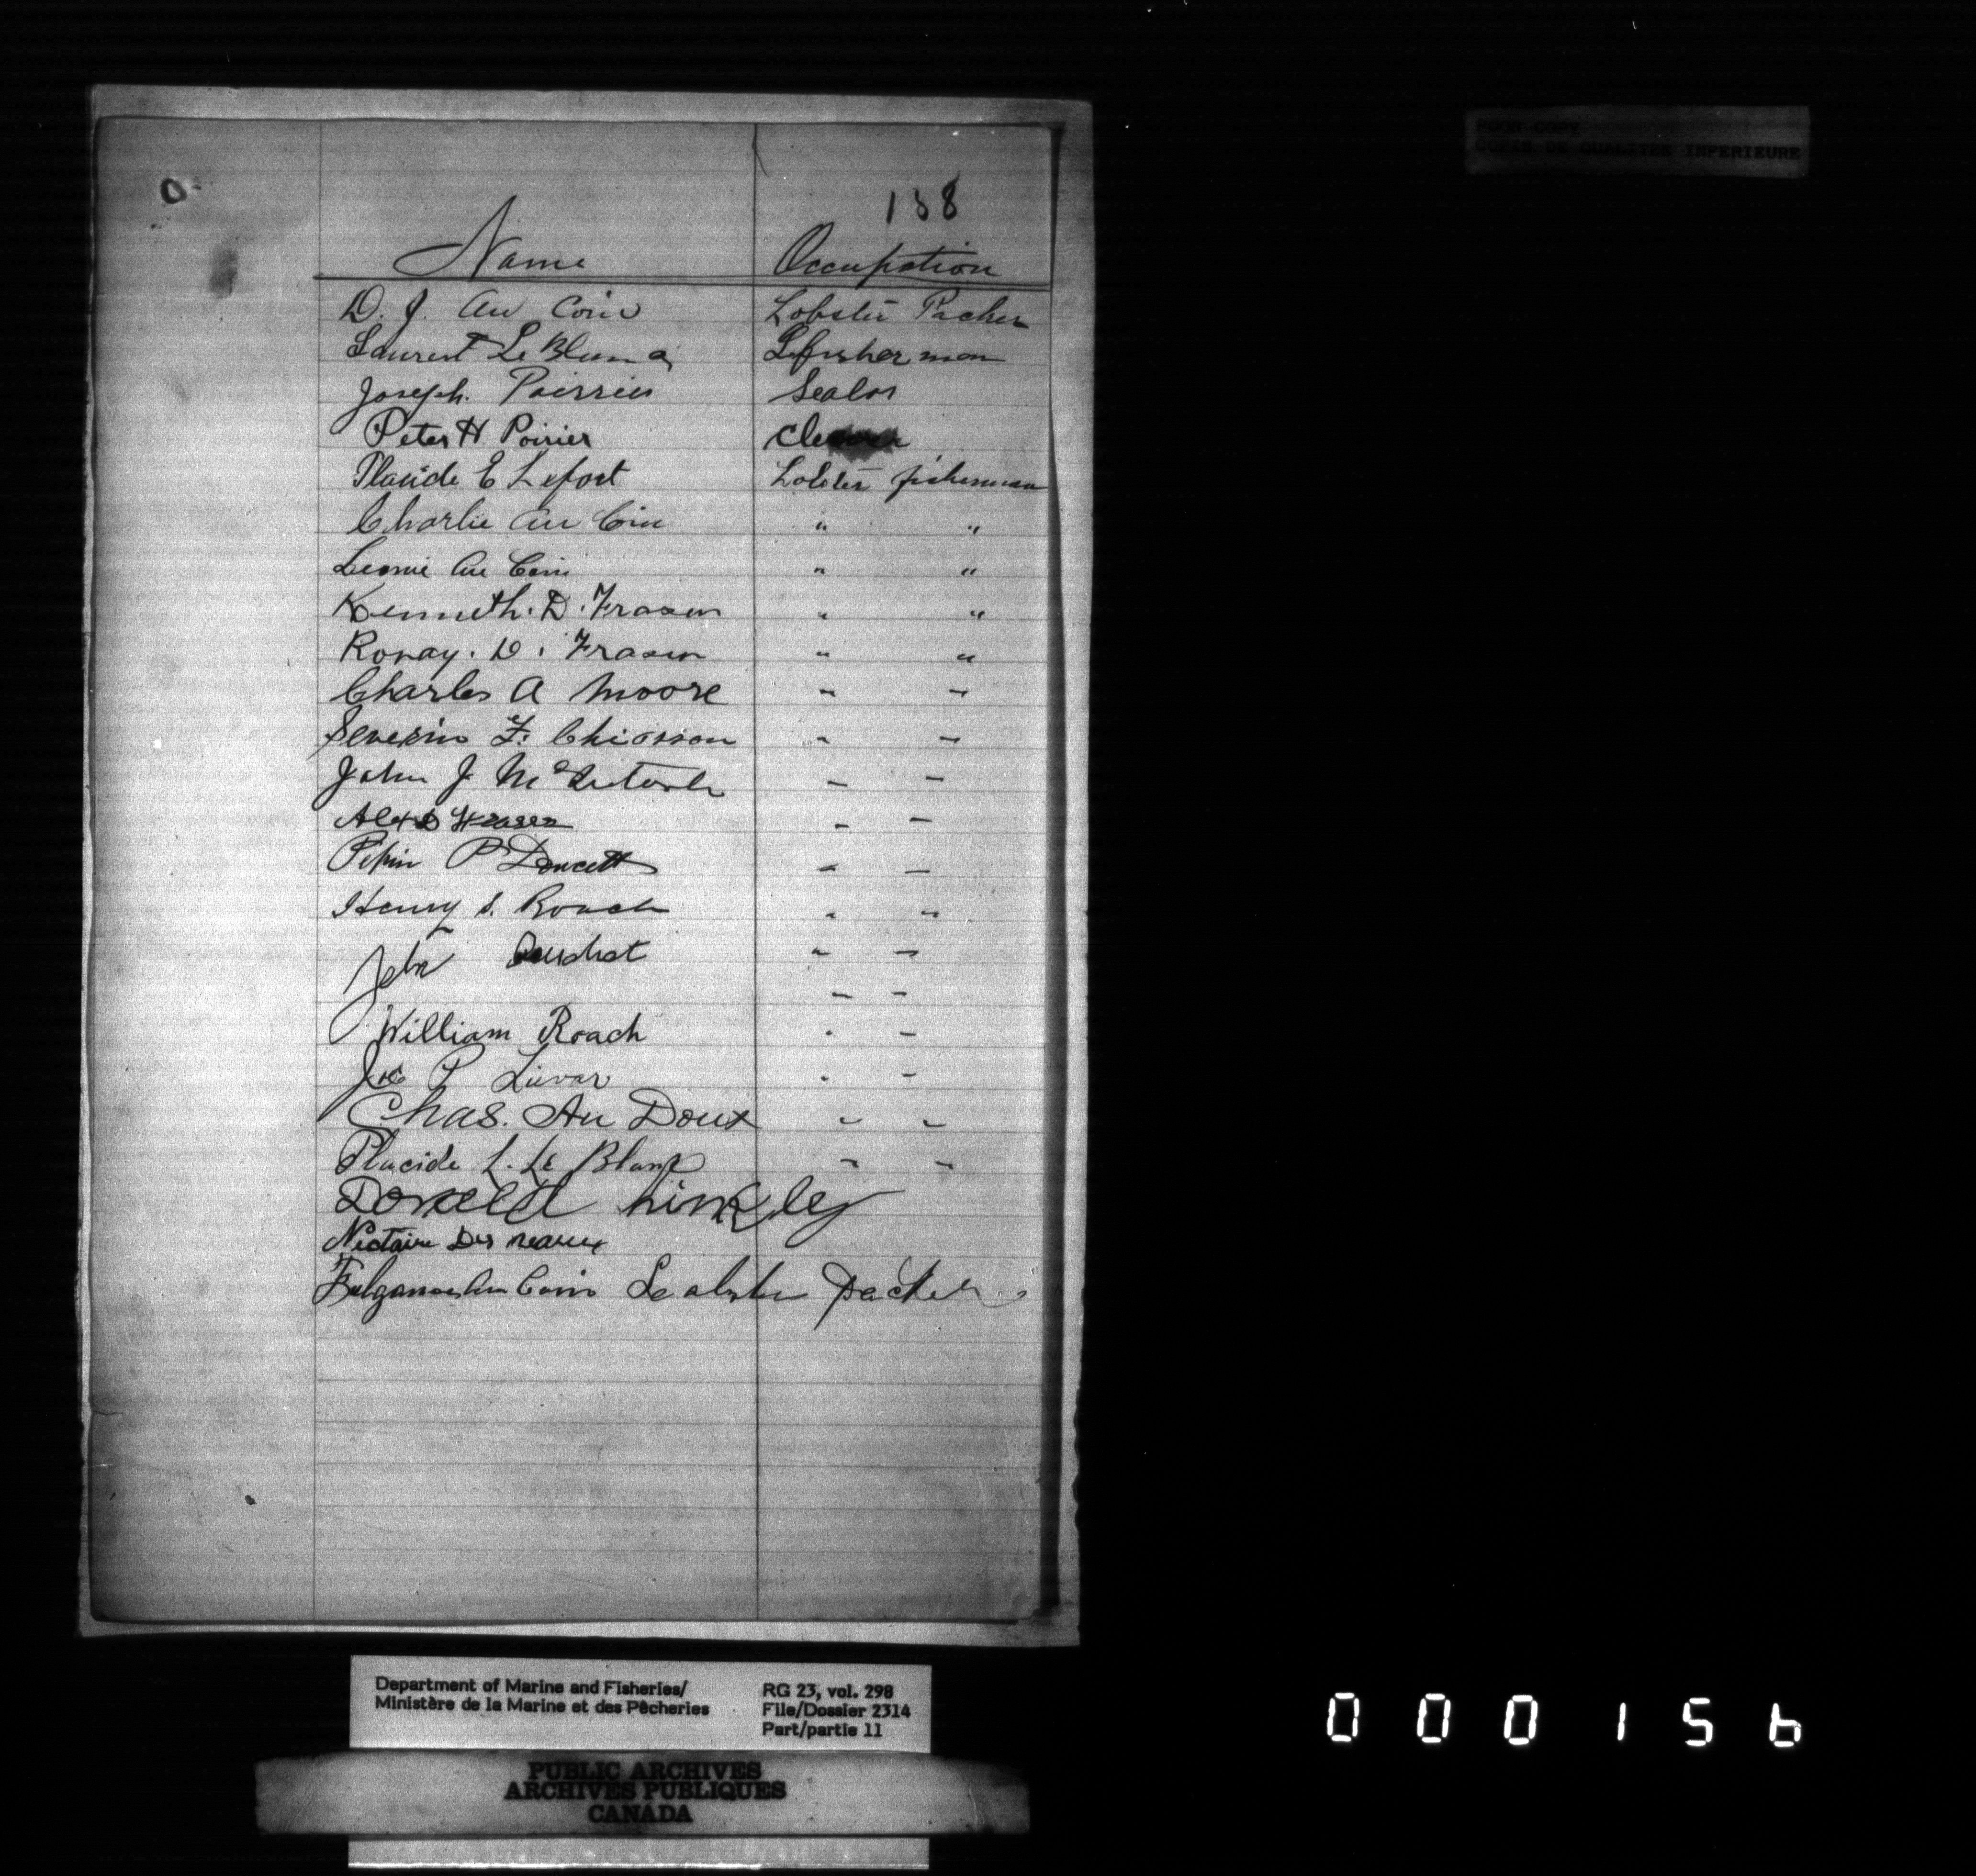 POOR COPY
COPIE DE QUALITEE INFERIEURE
158
Name Occupation
D. J. Au Coin Lobster Packer
Laurent Le Blanc L fisherman
Joseph. Poirrier Sealor
Peter H Poirier
Placide E Lefort Lobster fisherman
Charlie Au Coin " "
Leonie Au Coin " "
Kenneth. D. Fraser " "
Roray. D. Fraser " "
Charles A Moore " "
Severin F. Chiasson " "
John J McIntosh " "
Alex D Fraser " "
Pepin P Doucett " "
Henry S. Roach " "
John " "
" "
William Roach " "
Joe P " "
Chas. Au Doux " "
Placide L. Le Blanc " "
Donald hinkley
Nectaire Des
Au Coin packer
Department of Marine and Fisheries/
Ministère de la Marine et des Pêcheries
RG 23, vol. 298
File/Dossier 2314
Part/partie 11
PUBLIC ARCHIVES
ARCHIVES PUBLIQUES
CANADA
000156